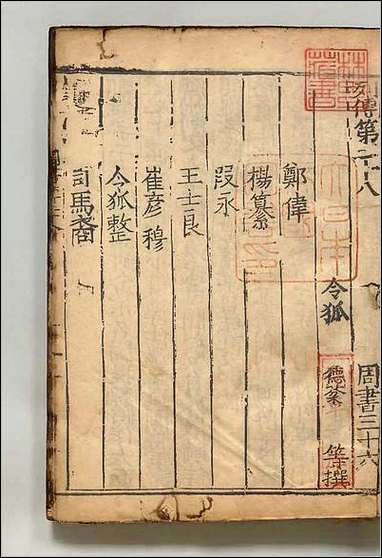 列傳第二十八 周書三十六
令狐 德棻 等撰
鄭偉
楊纂
段永
王士良
崔彦穆
令狐整
司馬裔